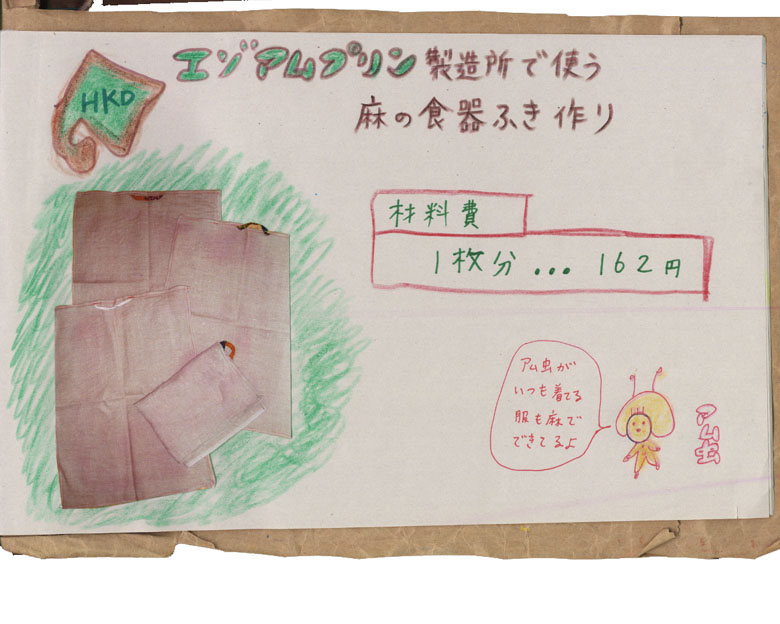 HKD
エゾアムプリン製造所で使う
麻の食器ふき作り
材料費
1枚分...162円
アム虫が
いつも着てる
服も麻で
できてるよ
アム虫